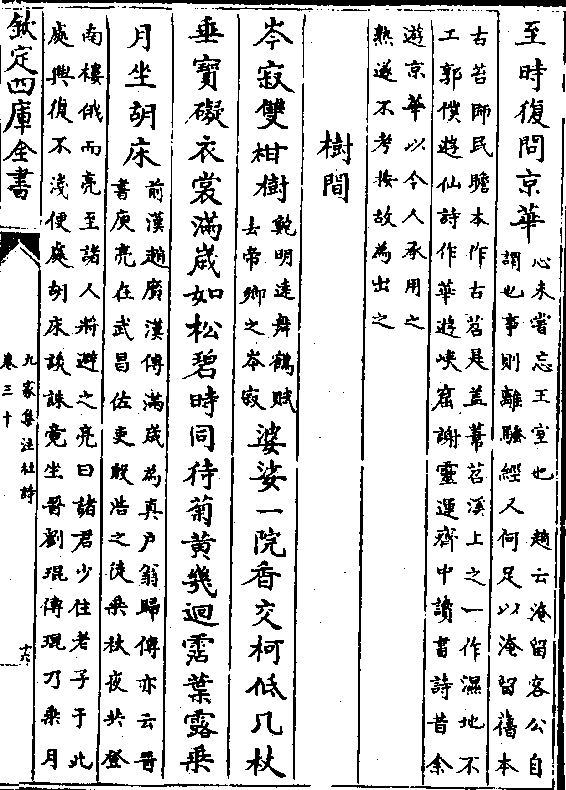 至時復問京華
心未嘗忘王室也　趙云淹留客公自
謂也事則離騷經人何足以淹留舊本
古苔師民瞻本作古苕是盖葦苕溪上之一作濕地不
工郭僕遊仙詩作華遊峽窟謝靈運齊中讀書詩昔余
遊京華以今人承用之
熟遂不考按故為出之
樹間
岑寂雙柑樹
鮑明遠舞鶴賦
去帝鄉之岑寂
婆娑一院香交柯低几杖
垂寶礙衣裳滿歲如松碧時同待菊黃幾迴霑葉露乗
月坐胡床
前漢趙廣漢傳滿歲為真尹翁歸傳亦云晉
書庾亮在武昌佐吏殷浩之徒乗秋夜共登
南樓俄而亮至諸人將避之亮曰諸君少住老子于此
處興復不淺便處胡床談詠竟坐晉劉琨傳琨乃乗月
欽定四庫全書
九家集注杜詩
卷三十
十六